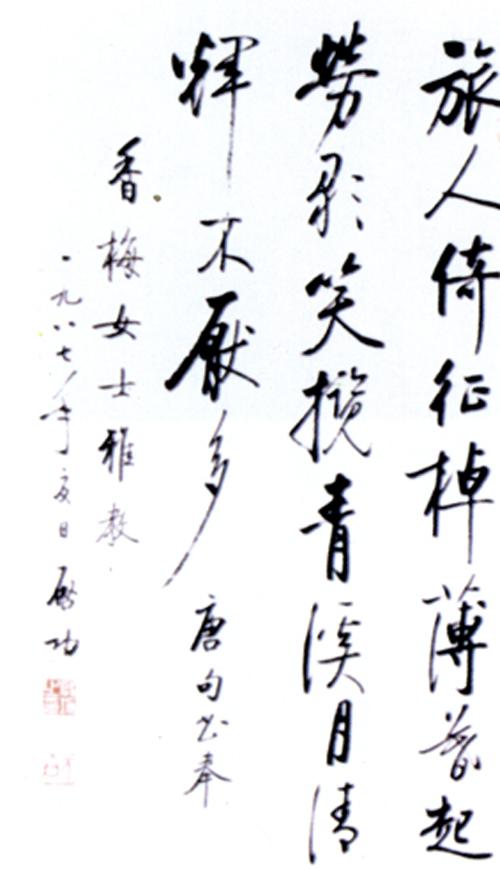 旅人倚征棹薄暮起
勞歌笑攬青溪月清
輝不厭多 唐句书奉
香梅女士雅教
一九八七年夏日 啟功